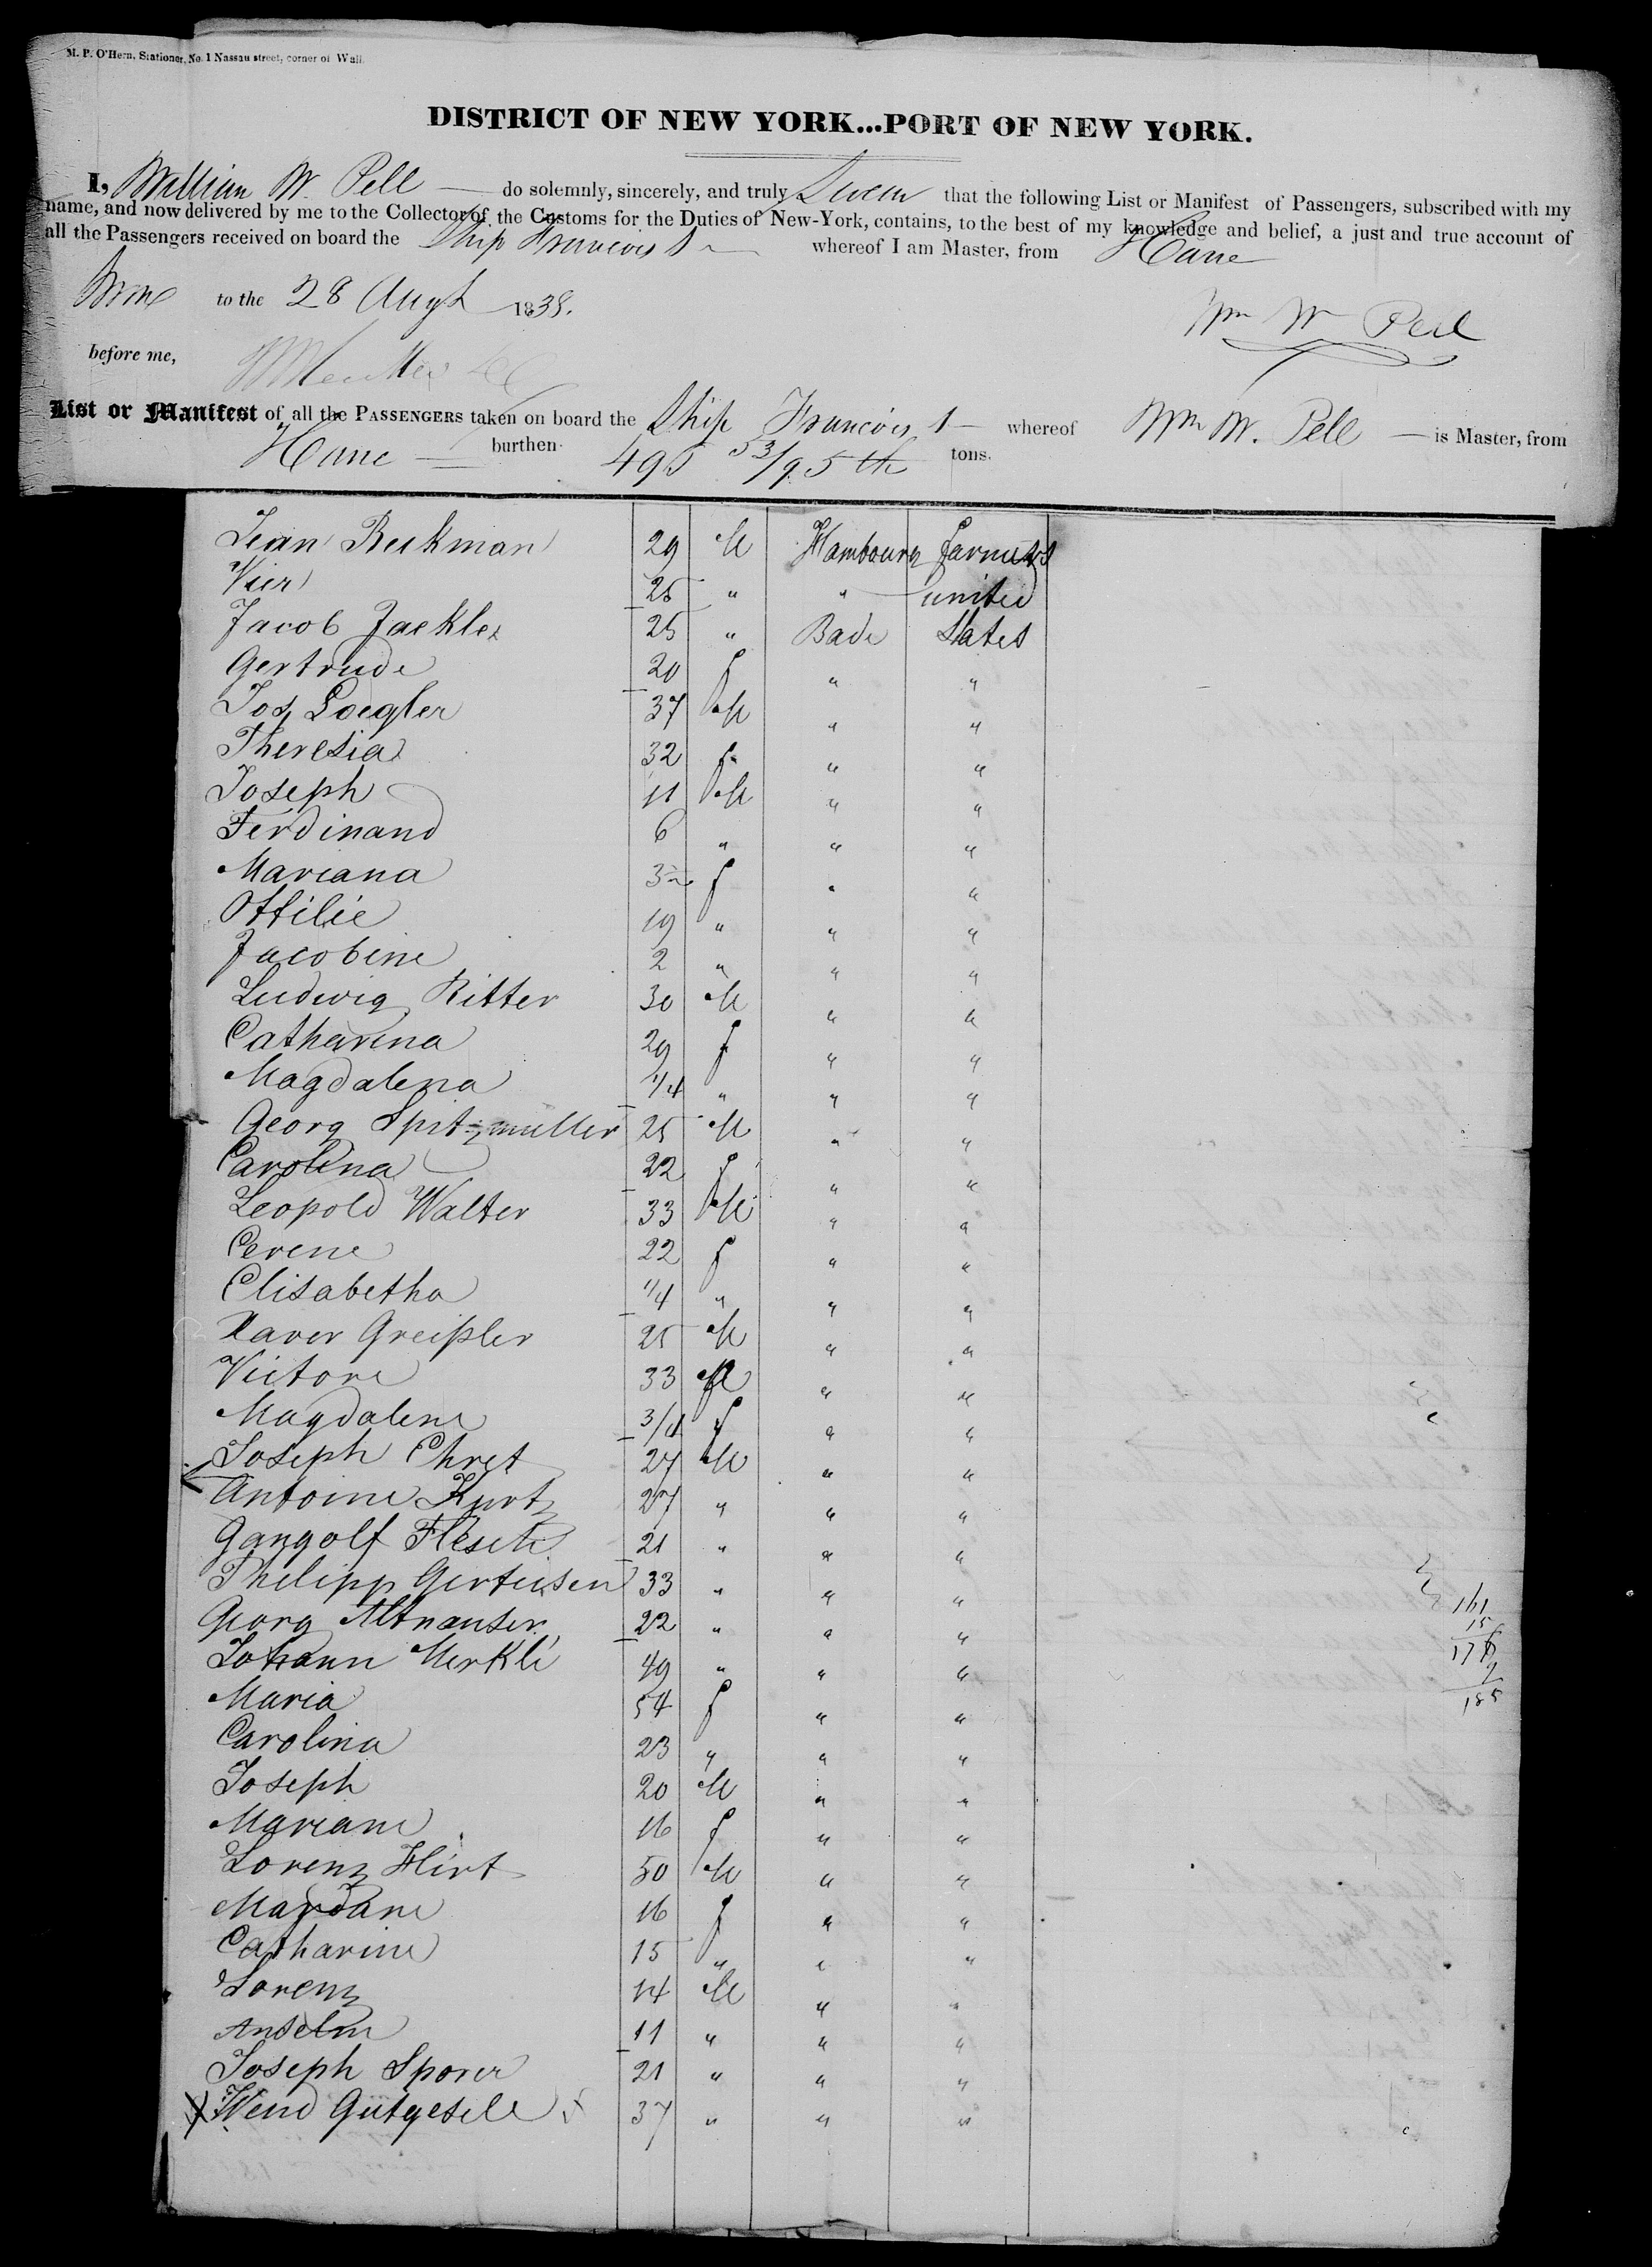 M. P. O'Hern, Stationer, No. 1 Nassau street, corner of Wall.
DISTRICT OF NEW YORK...PORT OF NEW YORK.
I, William W. Pell — do solemnly, sincerely, and truly Swear that the following List or Manifest of Passengers, subscribed with my
name, and now delivered by me to the Collector of the Customs for the Duties of New-York, contains, to the best of my knowledge and belief, a just and true account of
all the Passengers received on board the Ship Francois 1— whereof I am Master, from Havre
Sworn to the 28 Augt 1838.
Wm W Pell
before me,
List or Manifest of all the PASSENGERS taken on board the Ship Francois 1— whereof Wm W. Pell — is Master, from
Havre — burthen 495 53/95th tons.
Jean Beckman 29 M Hambourg farmers
Vier 25 " " united
Jacob Jaekler 25 " Bade States
Gertrude 20 f " "
Jos Loegler 37 M " "
Theresia 32 f " "
Joseph 11 M " "
Ferdinand 6 " " "
Mariana 3 f " "
Ottilie 19 " " "
Jacobine 2 " " "
Ludwig Ritter 30 M " "
Catharina 29 f " "
Magdalena 1/4 " " "
Georg Spitzmuller 25 M " "
Carolina 22 f " "
Leopold Walter 33 M " "
Cerene 22 f " "
Elisabetha 1/4 " " "
Xaver Greißler 25 M " "
Victore 33 " "
Magdalene 3/4 f " "
Joseph Ehret 27 M " "
Antoine Kurtz 27 " " "
Gangolf Flesch 21 " " "
Philipp Gerteisen 33 " " "
Georg Altnauser 22 " " "
Johann Merkle 49 " " "
Maria 54 f " "
Carolina 23 " " "
Joseph 20 M " "
Mariane 16 f " "
Lorenz Hirt 50 M " "
Mardane 16 f " "
Catharine 15 " " "
Lorenz 14 M " "
Anselm 11 " " "
Joseph Sporer 21 " " "
Wend Gutgesele 37 " " "
161
15
176
9
185